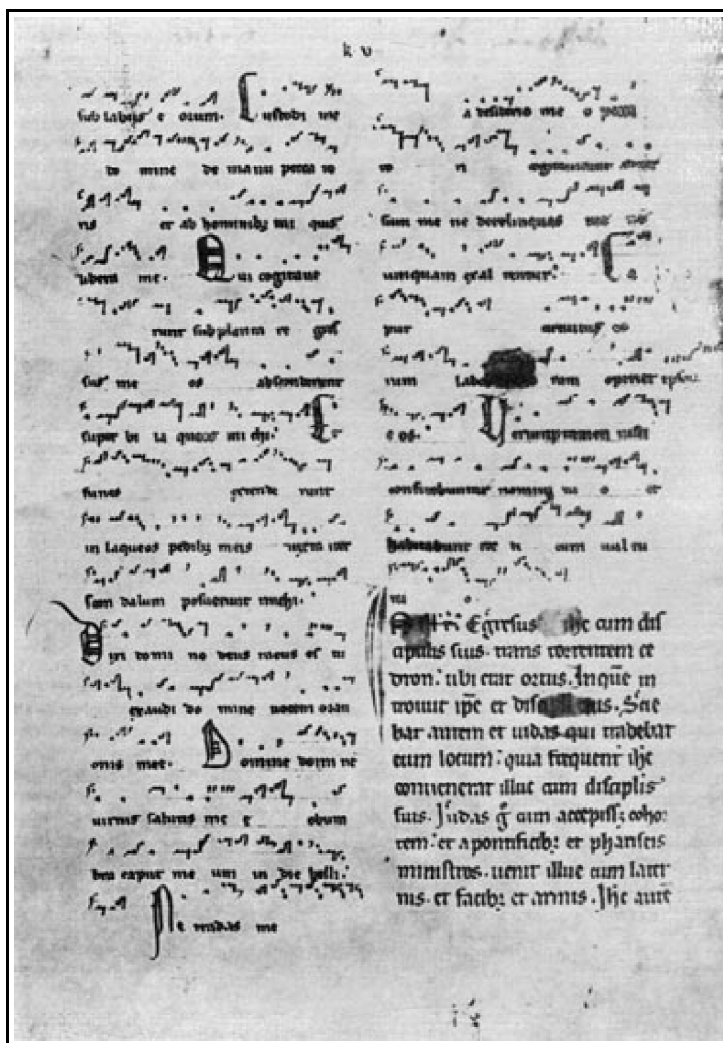 k v
sub labiis e orum. Custodi me
do mine de manu pecca to
ris et ab hominibꝫ ini quis
libera me. Qui cogitave
runt subplantare gres
sus me os absconderunt
super bi la queos mi chi.
funes
in laqueos pedibꝫ meis iuxta iter
scan dalum posuerunt michi.
Dixi domi no deus meus es tu
exaudi do mine vocem orati
onis mee. Domine domine
virtus salutis me e obum
bra caput me um in die belli.
Ne tradas me
a desiderio me o pecca
to ri cogitaverunt
sum me ne derelinquas me ne
unquam exal tentur. Ca
put circuitus eo
rum labor rum operiet ipsos
e os. Verumptamen iusti
confitebuntur nomini tu o et
habitabunt re ti cum vul tu
tu o.
Egressus ihc cum dis
cipulis suis. trans torrentem ce
dron. ubi erat ortus. In quē in
troivit ipē et discipuli eius. Scie
bat autem et iudas qui tradebat
eum locum. quia frequenter ihc
convenerat illuc cum discipulis
suis. Judas g cum accepissꝫ cohor
tem. et a pontificibꝫ et phariseis
ministros. venit illuc cum later
nis. et facibꝫ et armis. Ihc autē